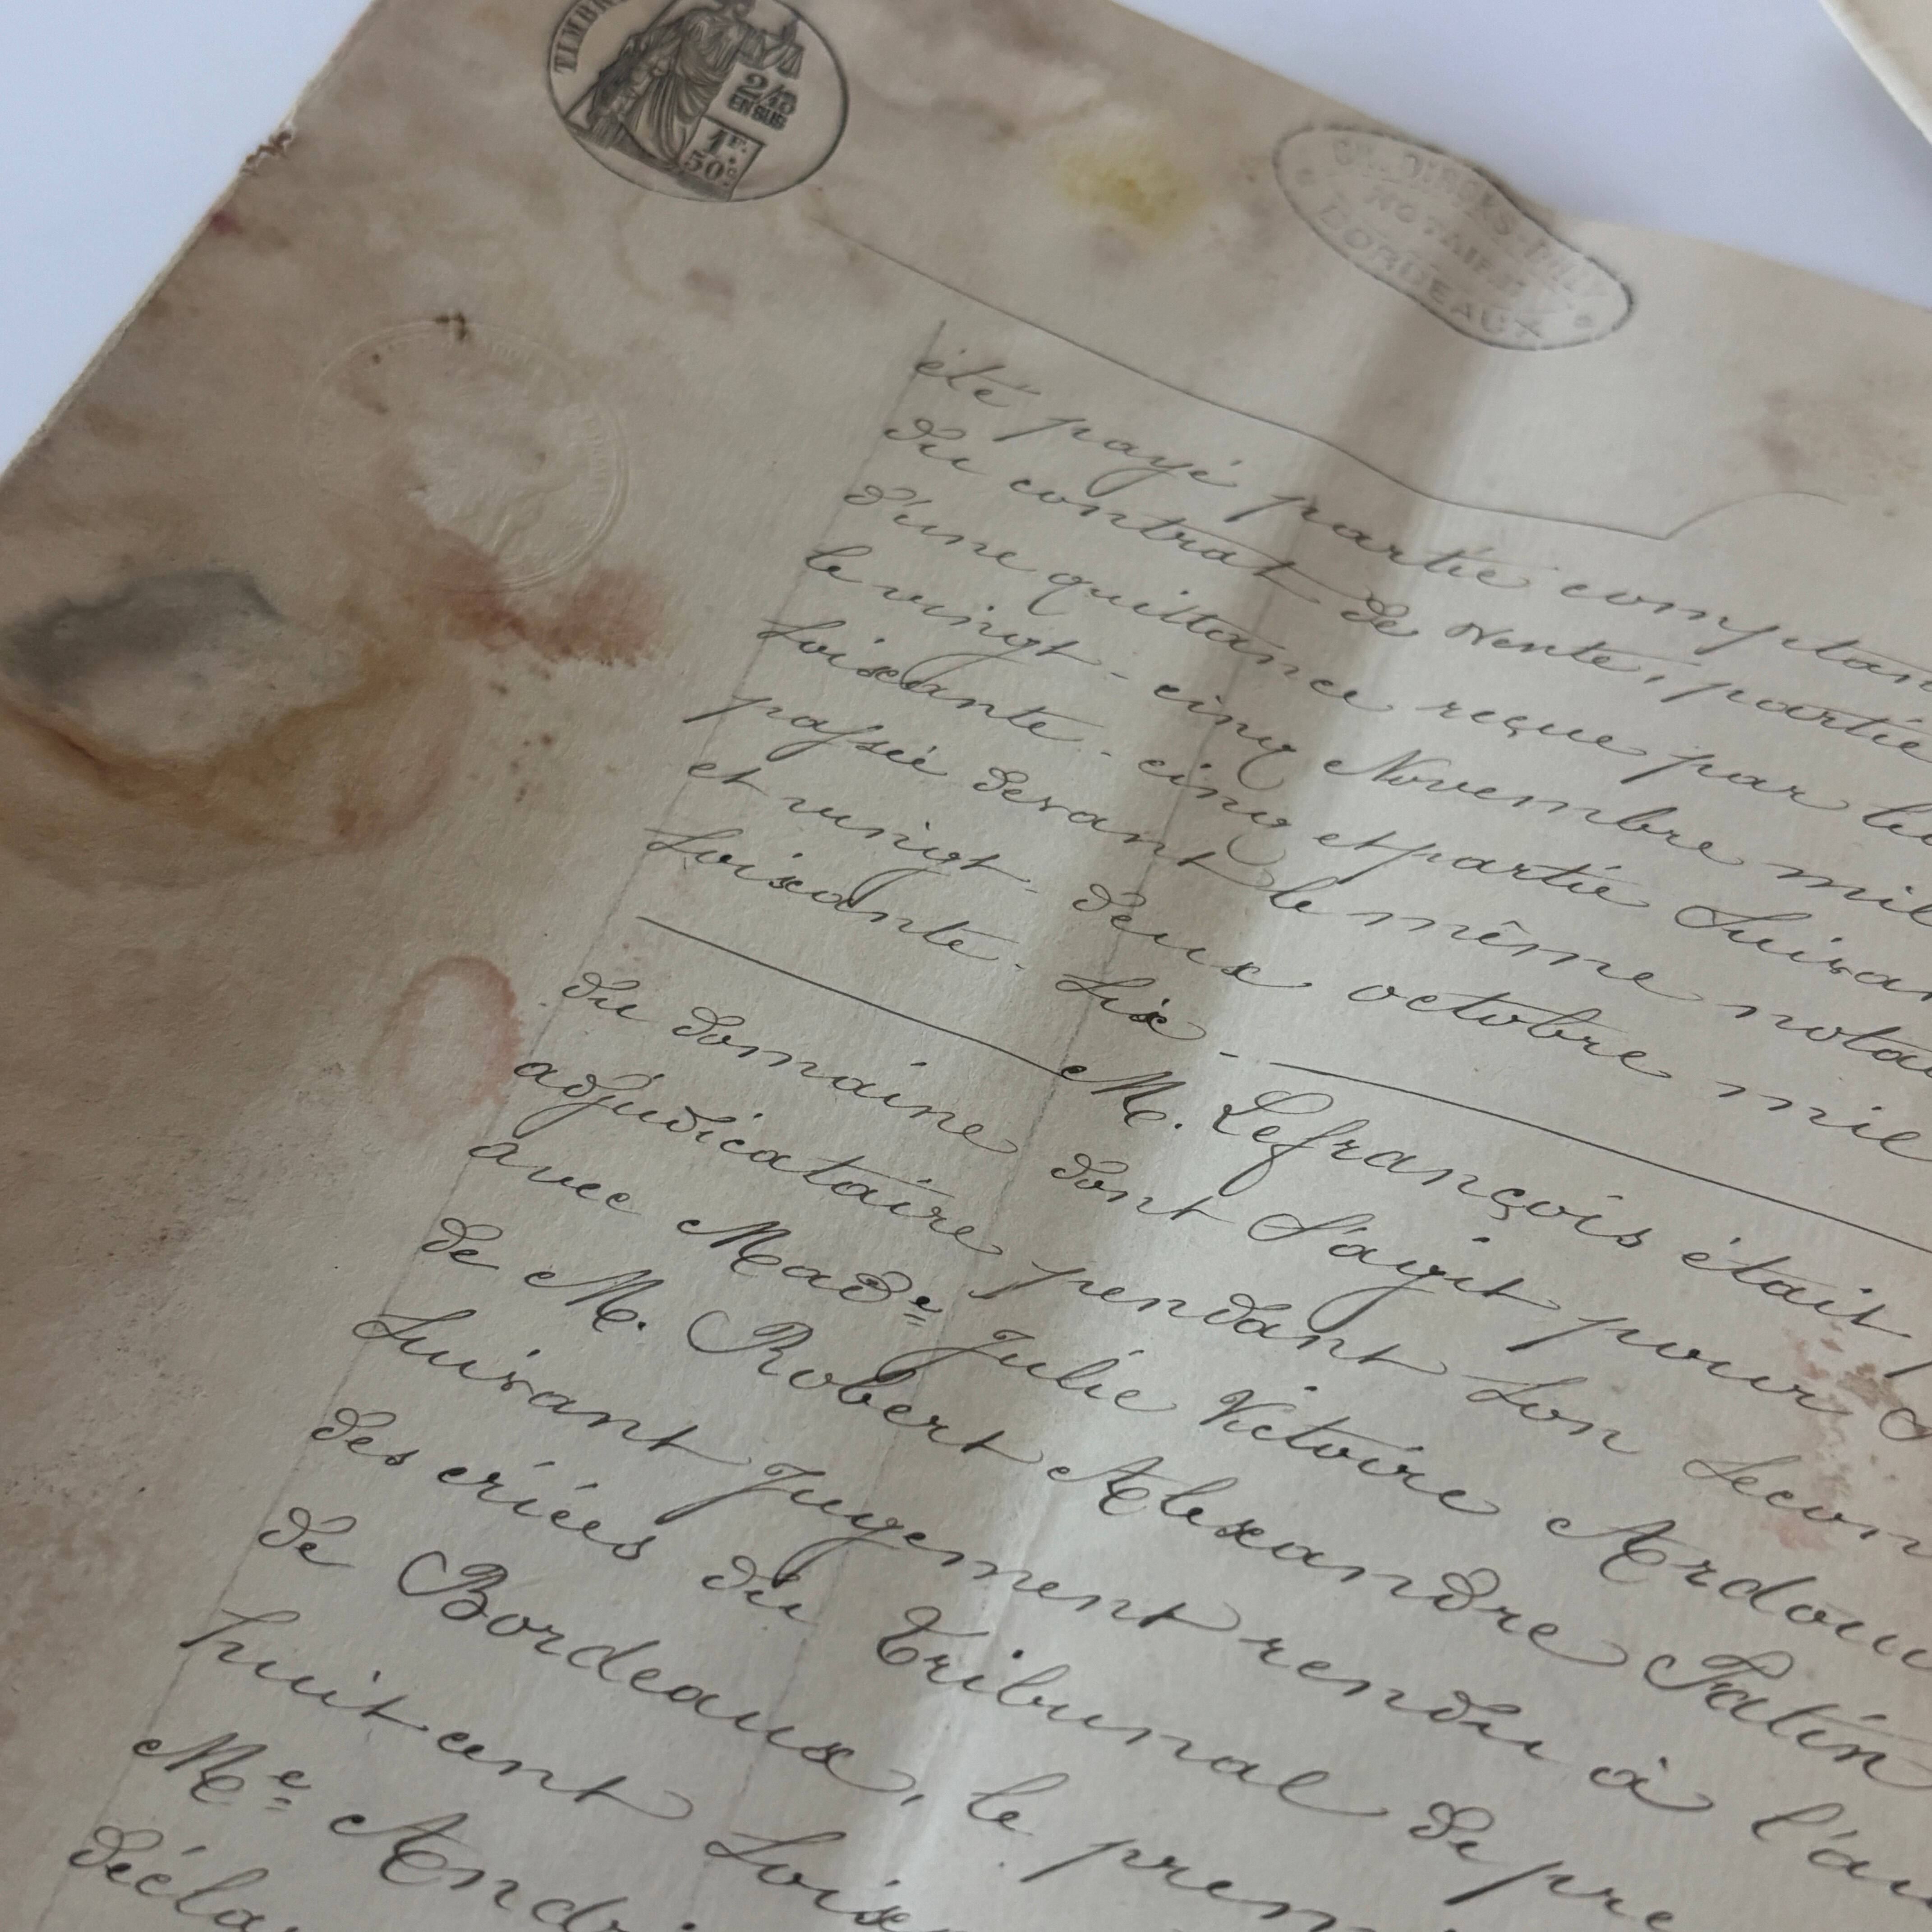 TIMBRE
2/10
EN SUS
1 F.
50 C.
NOTAIRE
BORDEAUX
été payé partie comptan
du contrat de vente, partie
d'une quittance reçue par le
le vingt-cinq Novembre mil
soixante-cinq et partie suivan
passée devant le même nota
et vingt-deux octobre mil
soixante-six.
M. Lefrançois était
du domaine dont s'agit pour
adjudicataire pendant son secon
avec Made Julie Victoire Ardou
de M. Robert Alexandre Patin
suivant Jugement rendu à l'au
des criées du Tribunal de pre
de Bordeaux, le prem
huit cent soix
Me And
décla